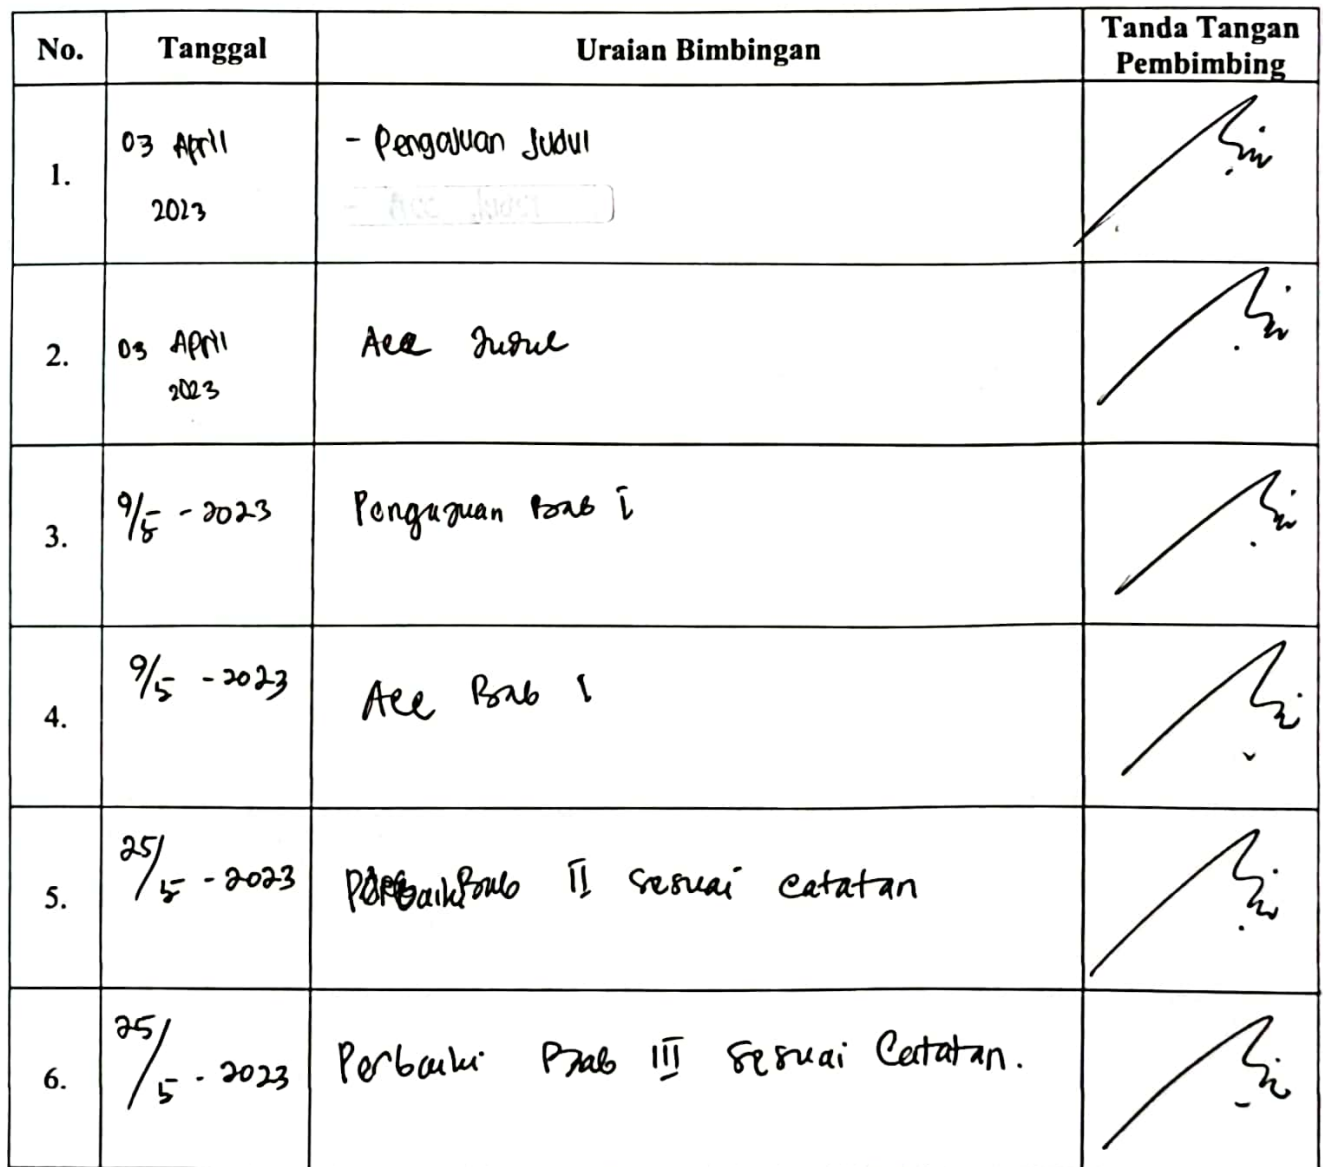 No. Tanggal Uraian Bimbingan Tanda Tangan Pembimbing
1. 03 April 2023 - Pengajuan Judul
- Acc Judul
2. 03 April 2023 Acc Judul
3. 9/5 - 2023 Pengajuan Bab I
4. 9/5 - 2023 Acc Bab I
5. 25/5 - 2023 Perbaiki Bab II sesuai catatan
6. 25/5 - 2023 Perbaiki Bab III sesuai Catatan.